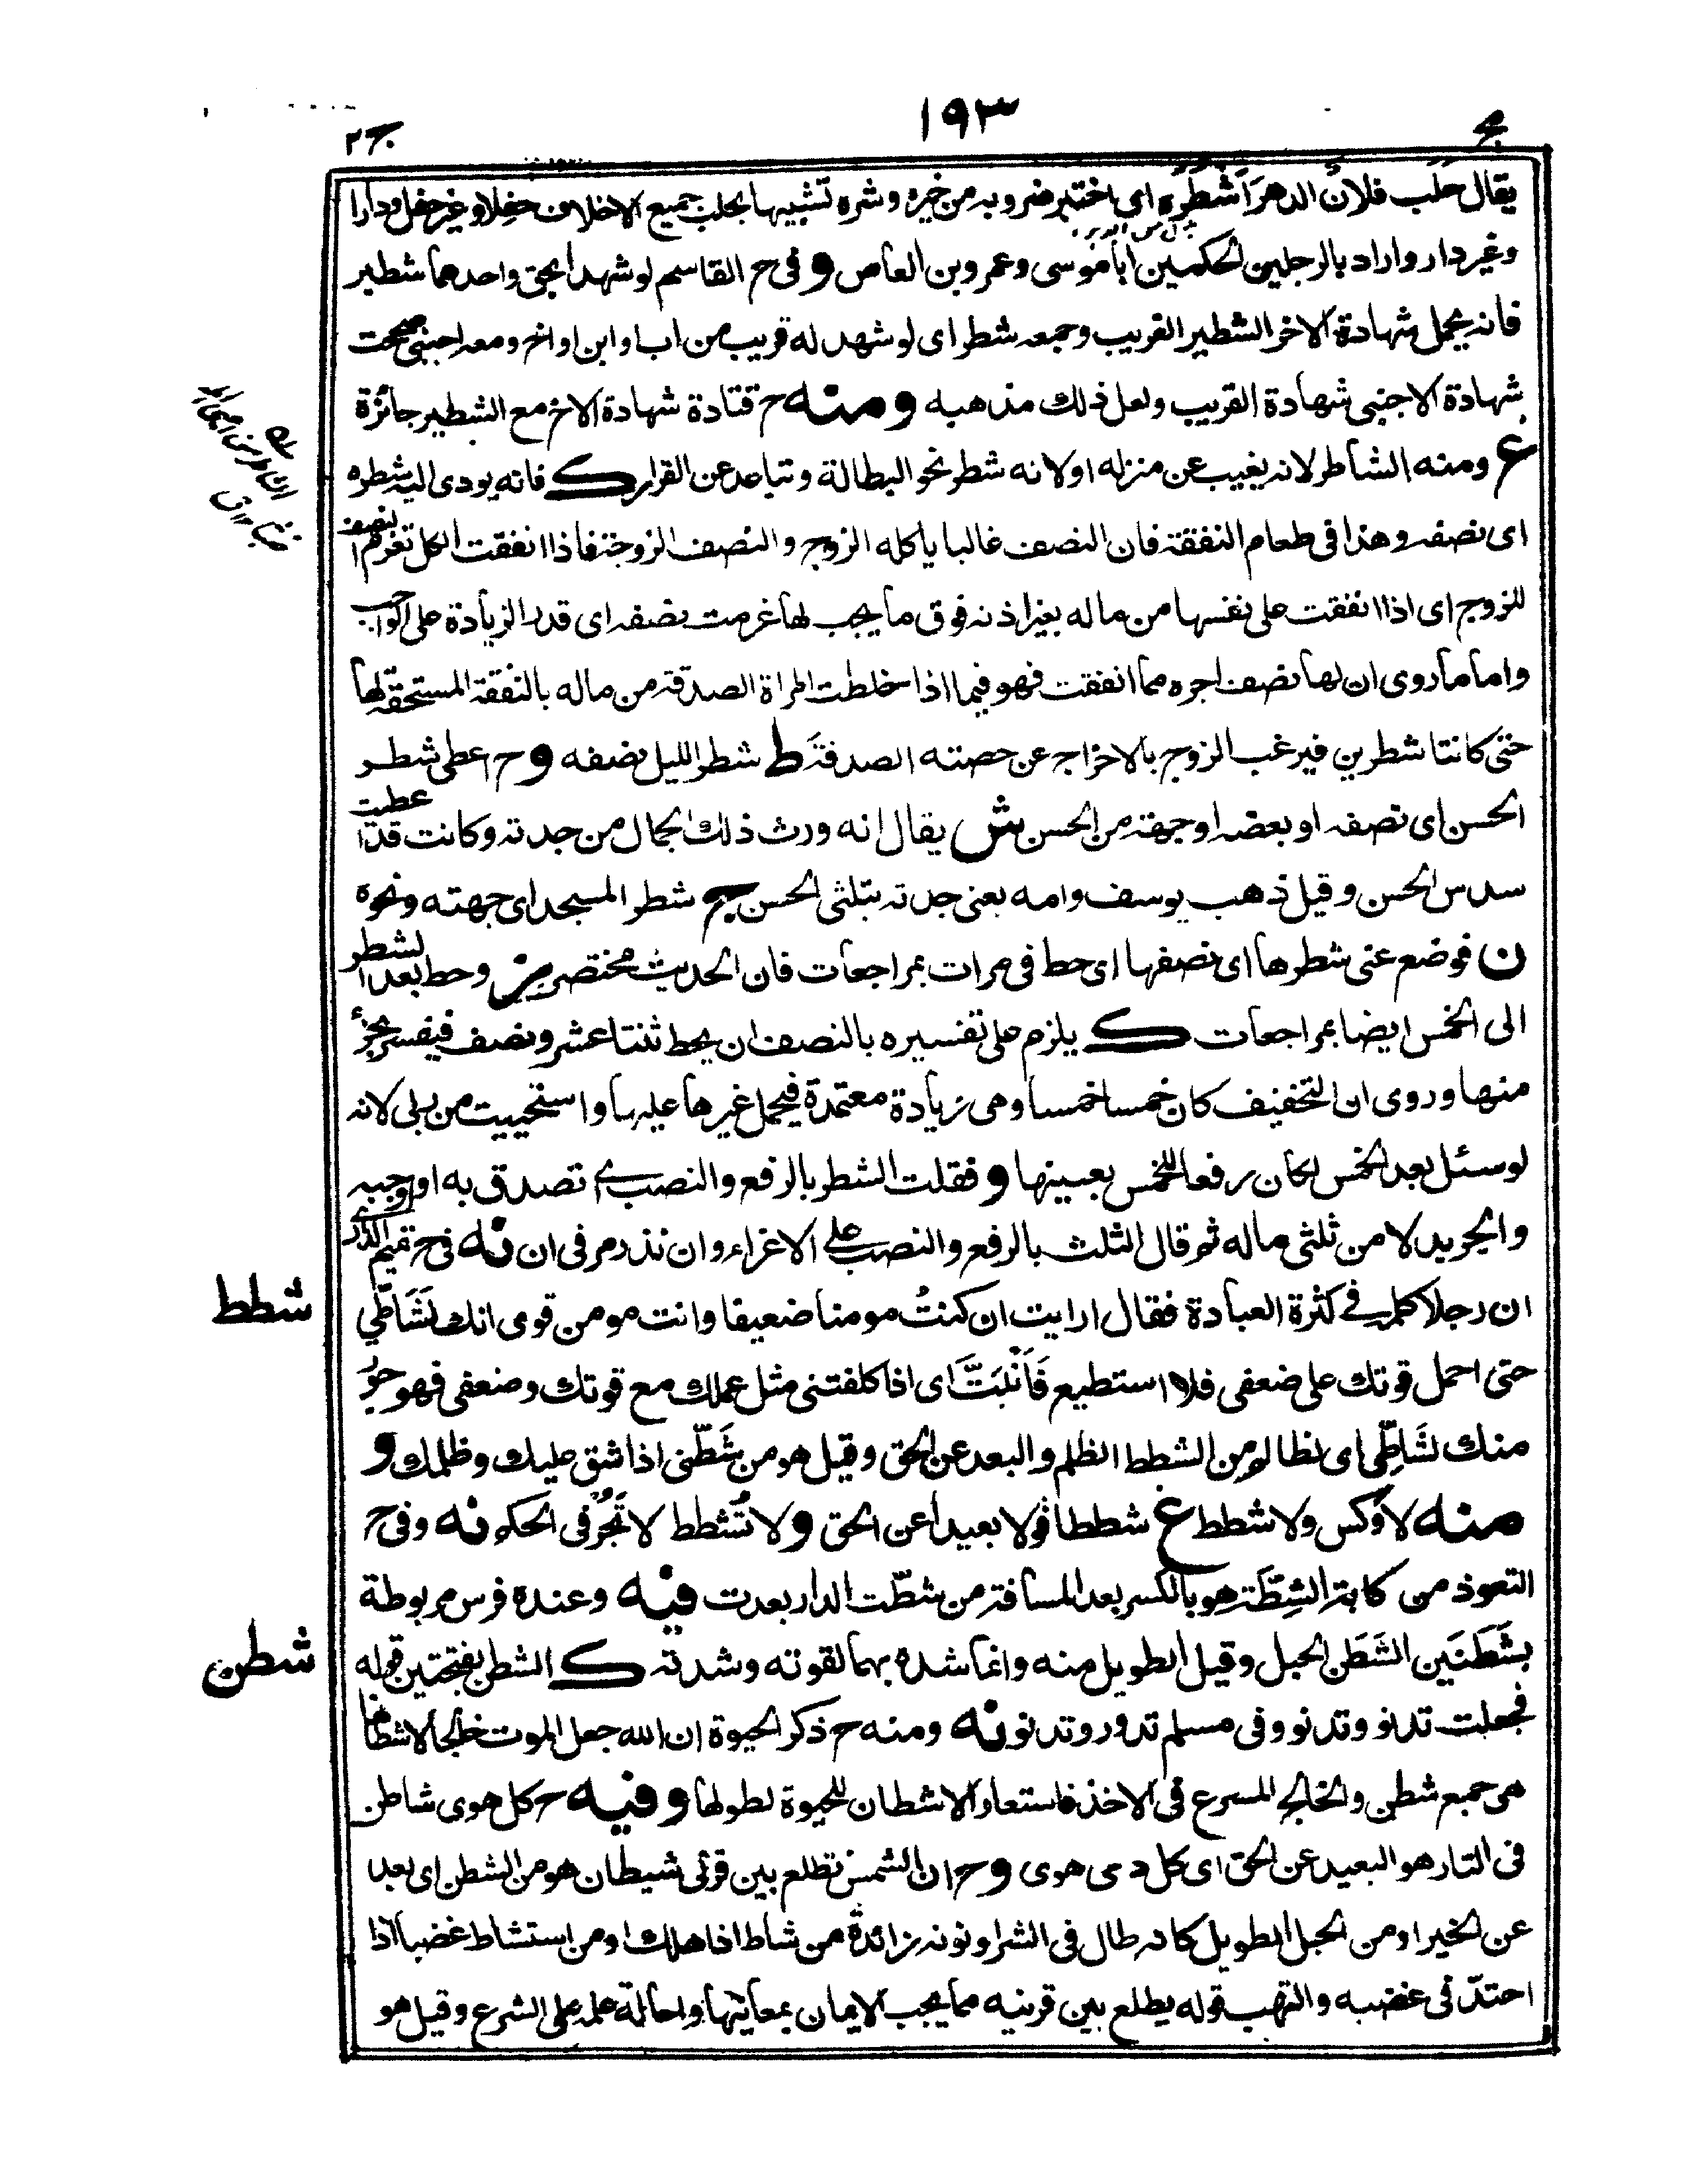 ١٩٣
ج٢
يقال حلب فلان الدهر اَشطُره اى اختبر ضروبه من خيره وشره تشبيها بحلب جميع الاخلاف حفلا وغير حفل ودارا
وغير دار واراد بالرجلين الحكمين ابا موسى وعمرو بن العاص و فى ح القاسم لو شهدا بحق واحدهما شطير
فانه يحمل شهادة الاخر الشطير القريب وجمعه شطر اى لو شهد له قريب من اب او ابن او اخ ومعه اجنبى صحت
شهادة الاجنبى شهادة القريب ولعل ذلك مذهبه ومنه ح قتادة شهادة الاخ مع الشطير جائزة
غ ومنه الشاطر لانه يغيب عن منزله او لانه شطر نحو البطالة وتباعد عن القرار ك فانه يودى اليه شطره
اى نصفه وهذا فى طعام النفقة فان النصف غالبا ياكله الزوج والنصف الزوجة فاذا انفقت الكل تغرم النصف
للزوج اى اذا انفقت على نفسها من ماله بغير اذنه فوق ما يجب لها غرمت نصفه اى قدر الزيادة على الواجب
واما ما روى ان لها نصف اجره مما انفقت فهو فيما اذا خلطت المراة الصدقة من ماله بالنفقة المستحقة لها
حتى كانتا شطرين فيرغب الزوج بالاخراج عن حصته الصدقة ط شطر الليل نصفه و ح اعطى شطر
الحسن اى نصفه او بعضه او جهة من الحسن ش يقال انه ورث ذلك الجمال من جدته وكانت قد اعطيت
سدس الحسن وقيل ذهب يوسف وامه يعنى جدته بثلثى الحسن ج شطر المسجد اى جهته ونحوه
ن فوضع عنى شطرها اى نصفها اى حط فى مرات بمراجعات فان الحديث مختصر وحط بعد الشطر
الى الخمس ايضا بمراجعات ك يلزم على تفسيره بالنصف ان يحط ثنتا عشر ونصف فيفسر بجزء
منها وروى ان التخفيف كان خمسا خمسا وهى زيادة معتمدة فيحمل غيرها عليها واستحييت من ربى لانه
لو سئل بعد الخمس لكان رفعا للخمس بعينها و فقلت الشطر بالرفع والنصب اى تصدق به او اوجبه
والحر يريد لا من ثلثى ماله ثم قال الثلث بالرفع والنصب على الاغراء وان نذر مر فى ان نه فى ح تميم الدارى
شطط
ان رجلا كلمه فى كثرة العبادة فقال ارايت ان كنتُ مومنا ضعيفا وانت مومن قوى انك لَشَاطِّي
حتى احمل قوتك على ضعفى فلا استطيع فَاَنْبَتَّ اى اذا كلفتنى مثل عملك مع قوتك وضعفى فهو جورٌ
منك لشَاطِّى اى لظالم من الشطط الظلم والبعد عن الحق وقيل هو من شَطّنى اذا شق عليك وظلمك و
منه لا وَكس ولا شطط غ شططا قولا بعيدا عن الحق ولا تُشطط لا تَجُرْ فى الحكم نه وفى ح
التعوذ من كابة الشِطَّة هو بالكسر بعد المسافة من شطّت الدار بعدت فيه وعنده فرس مربوطة
شطن
بشَطَنَين الشَطَن الحبل وقيل الطويل منه وانما شده بهما لقوته وشدته ك الشطن بفتحتين قوله
فجعلت تدنو وتدنو وفى مسلم تدور وتدنو نه ومنه ح ذكر الحيوة ان الله جعل الموت خالجا لاشطانها
هى جمع شطن والخالج المسرع فى الاخذ فاستعار الاشطان للحيوة لطولها وفيه ح كل هوى شاطن
فى النار هو البعيد عن الحق اى كل ذى هوى و ح ان الشمس تطلع بين قرنى شيطان هو من الشطن اى بعد
عن الخير او من الحبل الطويل كانه طال فى الشر او نونه زائدة من شاط اذا هلك او من استشاط غضبا اذا
احتدّ فى غضبه والتهب قوله يطلع بين قرنيه مما يجب الايمان بمعانيها واحالة علمه على الشرع وقيل هو